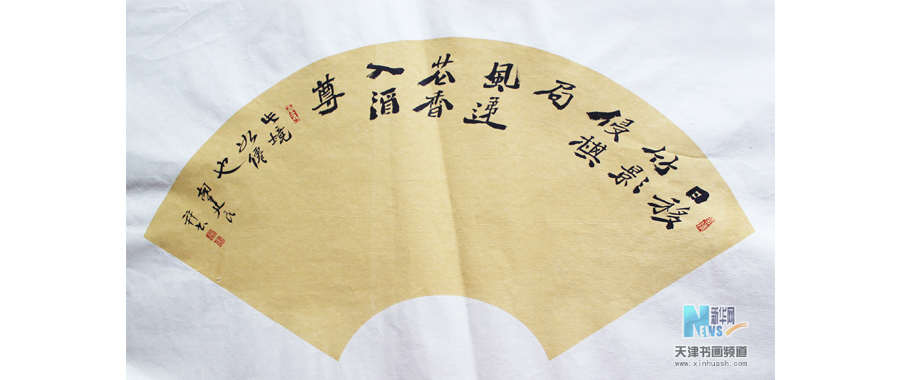 日移
竹影
侵棋
局
風遞
花香
入酒
尊
此境
也
新华网
NEWS
天津书画频道
www.xinhuash.com